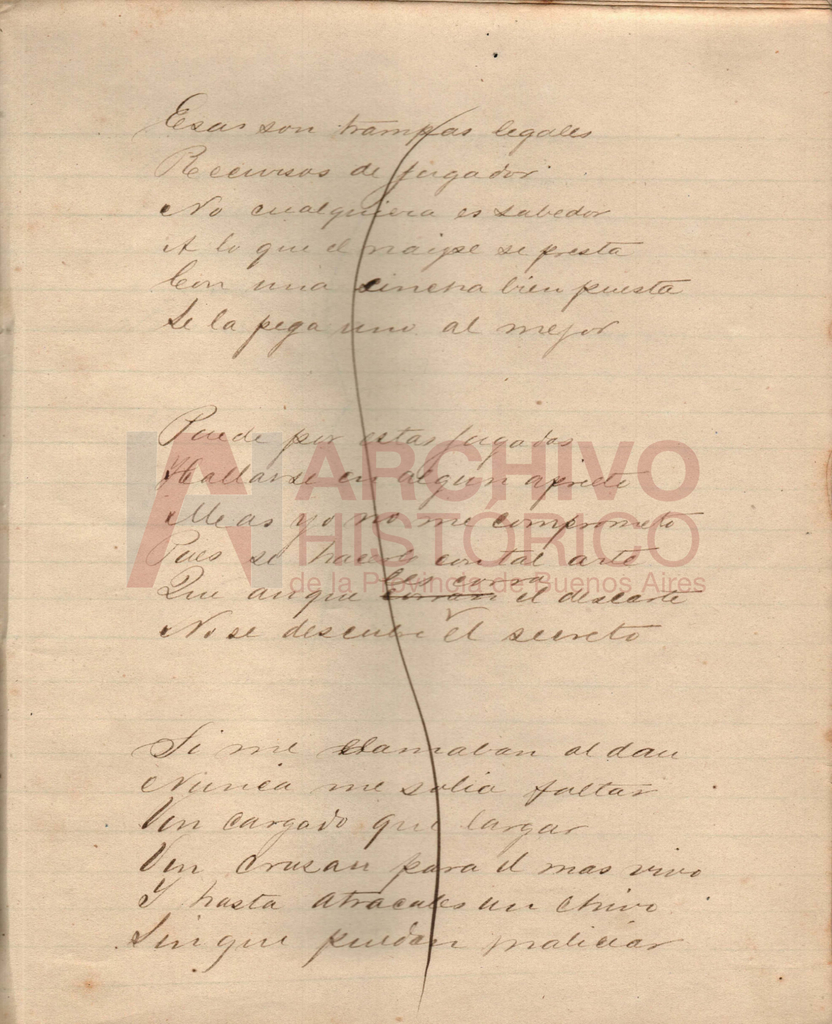 Esas son trampas legales
Recursos de jugador
No cualquiera es sabedor
A lo que el naipe se presta
Con una cincha bien puesta
Se la pega uno al mejor
Puede por estas jugadas
Hallarse en algun aprieto
Meas yo no me comprometo
Pues se hacerlo con tal arte
les corra
Que aunque el descarte
No se descubre el secreto
Si me llamaban al dau
Nunca me solia faltar
Un cargado que largar
Un cruzau para el mas vivo
Y hasta atracales un chivo
Sin que puedan maliciar
ARCHIVO
HISTÓRICO
de la Provincia de Buenos Aires